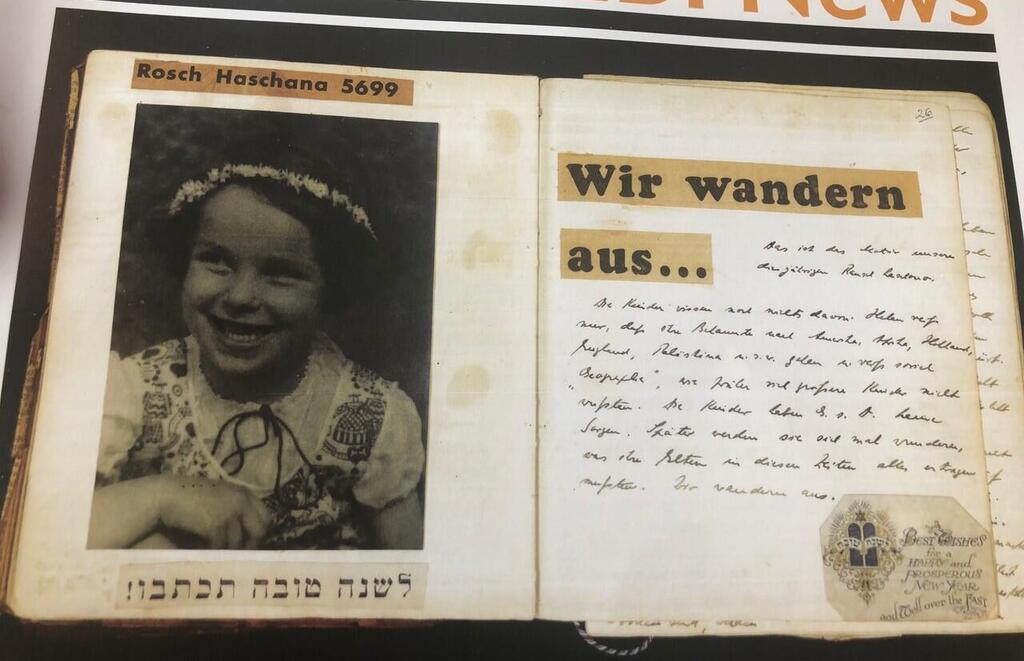 News
Rosch Haschana 5699
לשנה טובה תכתבו!
26
Wir wandern
aus...
Das ist das Motiv unserer
diesjährigen
Die Kinder wissen noch nichts davon. Helen weiß
nur, daß ihre Bekannte nach Amerika, Afrika, Holland,
England, Palästina u.s.w. gehen u. weiß soviel
„Geographie", wie früher viel größere Kinder nicht
wußten. Die Kinder haben G. s. D. keine
Sorgen. Später werden sie sich mal wundern,
was ihre Eltern in diesen Zeiten alles ertragen
mußten. Wir wandern aus.
Best Wishes
for a
Happy and
Prosperous
New Year
and Well over the Fast